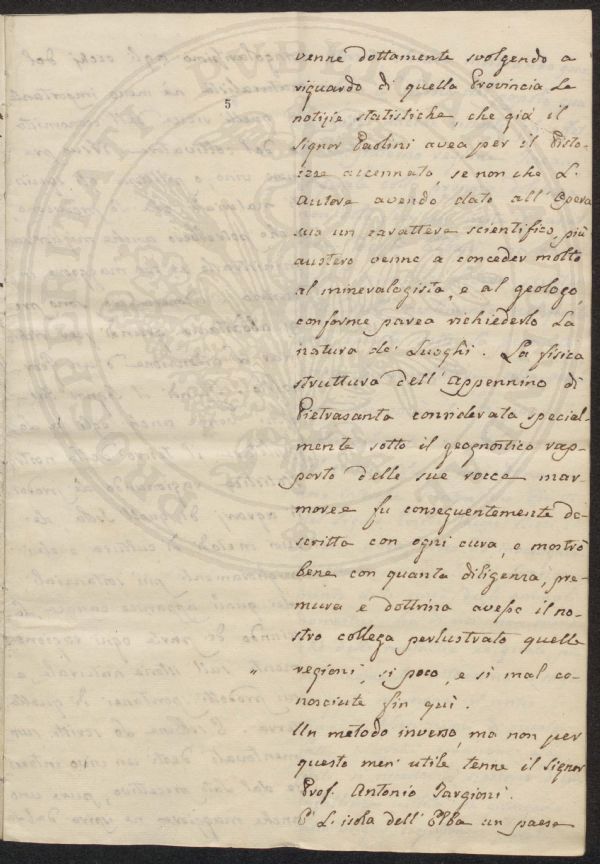 venne dottamente svolgendo a
riguardo di quella Provincia le
notizie statistiche, che già il
5
signor Paolini avea per il Pisto-
jese accennato, se non che L.
Autore avendo dato all' Opera
sua un carattere scientifico, più
austero venne a conceder molto
al mineralogista, e al geologo,
conforme parea richiederlo la
natura de' Luoghi. La fisica
struttura dell' Appennino di
Pietrasanta considerata special-
mente sotto il geognostico rap-
porto delle sue rocce mar-
moree fu conseguentemente de-
scritta con ogni cura, e mostrò
bene con quanta diligenza, pre-
mura e dottrina avesse il no-
stro collega perlustrato quelle
regioni, sì poco, e sì mal co-
nosciute fin quì.
Un metodo inverso, ma non per
questo men' utile tenne il signor
Prof. Antonio Targioni.
E' L. isola dell' Elba un paese